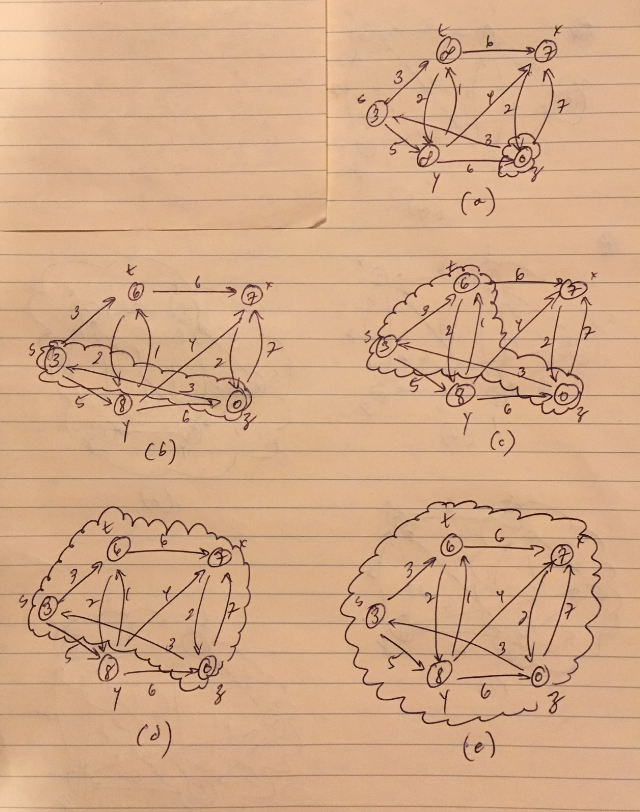 t 6 x
∞ 7
3 2 1 4 2 7
s 3
3
5 ∞ 0
y 6 z
(a)
t 6 x
6 7
3
s 3 2 1 4 2 7
3
5 8 6 0
y z
(b)
t 6 x
6 7
3
s 3 2 1 4 2 7
3
5 8 6 0
y z
(c)
t 6 x
6 7
3
s 3 2 1 4 2 7
3
5 8 6 0
y z
(d)
t 6 x
6 7
3
s 3 2 1 4 2 7
3
5 8 6 0
y z
(e)